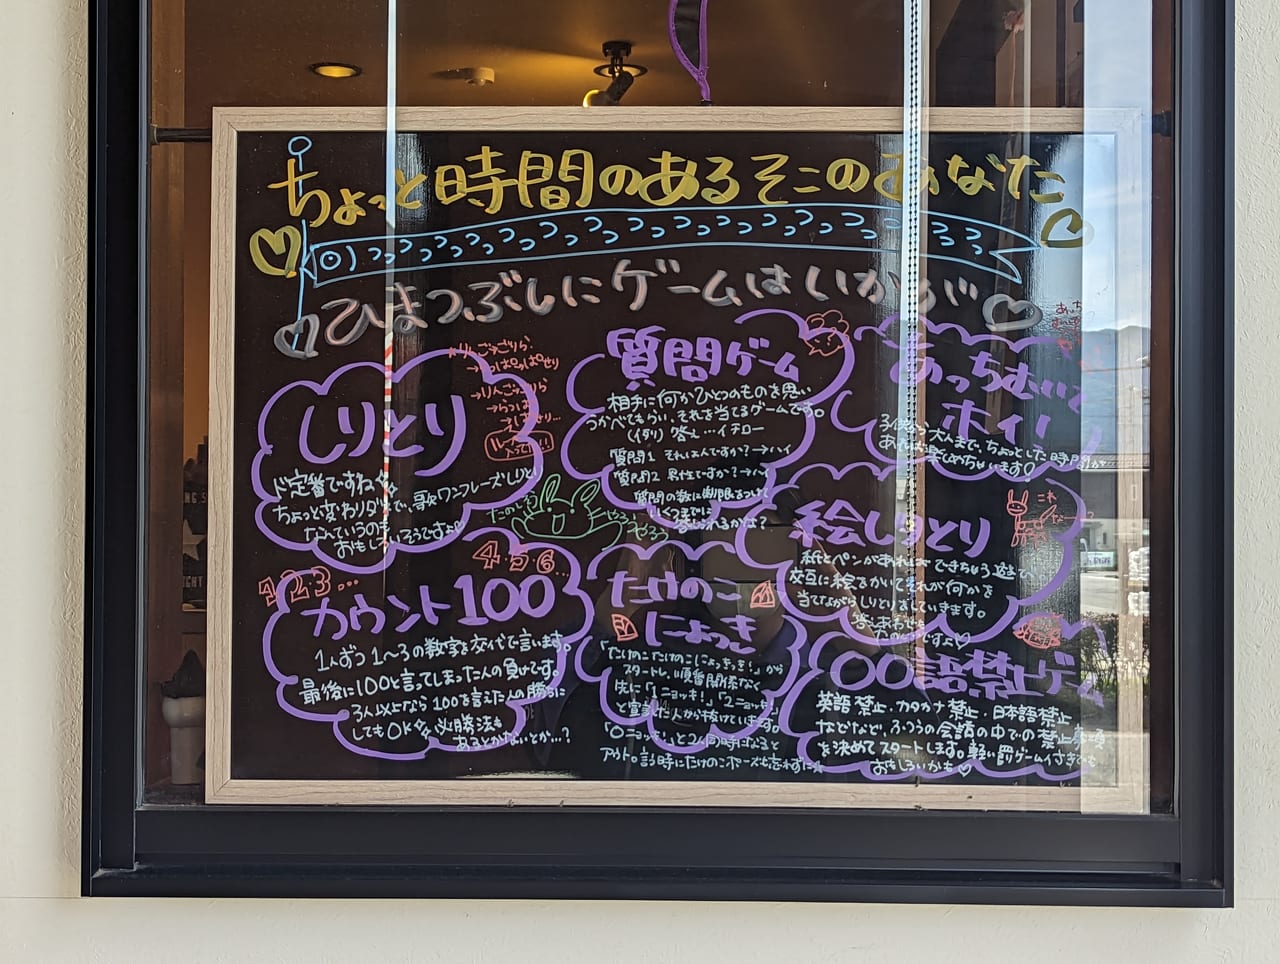 ちょっと時間のあるそこのあなた
ひまつぶしにゲームはいかが
しりとり
ド定番ですね
ちょっと変わりダネで、歌ワンフレーズしりとり
なんていうのも
おもしろいそうですよ
たのしそう
やろうやろう
質問ゲーム
相手に何かひとつのものを思い
うかべてもらい、それを当てるゲームです。
(例) 答え…イチロー
質問1 それは人ですか?→ハイ
質問2 男性ですか?→ハイ
質問の数に制限をつけて
いくつまでに
答えられるかな?
あっちむいて
ホイ!
子供から大人まで、ちょっとした時間が
あれば楽しめちゃいます!
絵しりとり
紙とペンがあればできちゃう遊び
交互に絵をかいてそれが何かを
当てながらしりとりをしていきます。
たのしいですよ
これ
なーに?
1・2・3…
4・5・6…
カウント100
1人ずつ1~3の数字を交代で言います。
最後に100と言ってしまった人の負けです。
3人以上なら100を言えた人の勝ちに
してもOK 必勝法も
あるとかないとか…?
たけのこ
にょっき
「たけのこたけのこにょっきっき!」から
スタートし、順番関係なく
先に「1ニョッキ!」、「2ニョッキ!」
と宣言した人から抜けていきます。
「〇ニョッキ!」と2人同時になると
アウト。言う時にたけのこポーズも忘れずに
〇〇語禁止ゲーム
英語禁止、カタカナ禁止、日本語禁止
などなど、ふつうの会話の中での禁止事項
を決めてスタートします。軽い罰ゲームつきでも
おもしろいかも